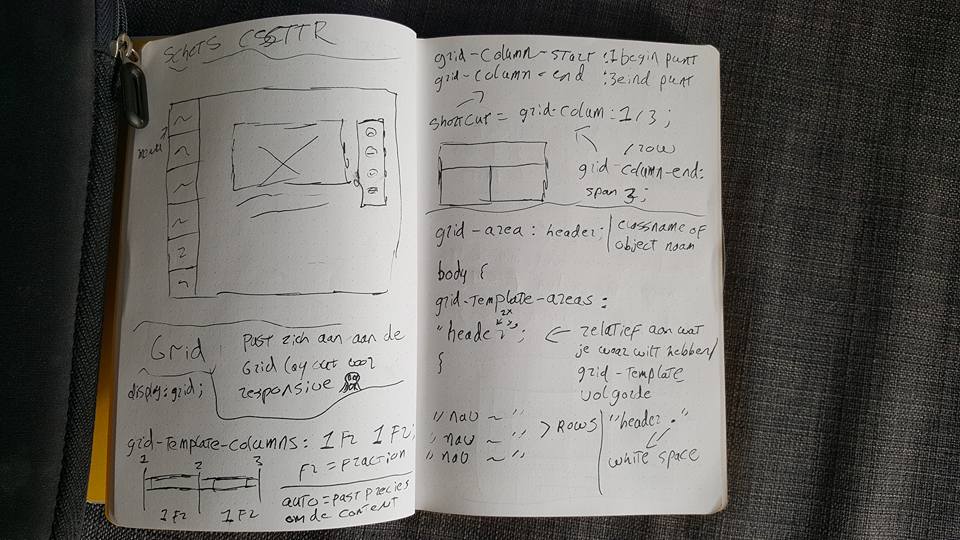 Schets CSSTTR
Grid
Past zich aan aan de
Grid layout voor
responsive
display: grid;
grid-template-columns: 1Fr 1Fr;
1 2 3
1Fr 1Fr
Fr = Fraction
auto = past precies
om de content
grid-column-start :1 begin punt
grid-column-end :3 eind punt
shortcut = grid-colum: 1/3;
/row
grid-column-end:
span 3;
grid-area: header; | classname of
object naam
body {
grid-template-areas:
2x
"header";
{
← relatief aan wat
je waar wilt hebben/
grid-template
volgorde
"nav ~"
"nav ~"
"nav ~"
> Rows
"header ."
white space